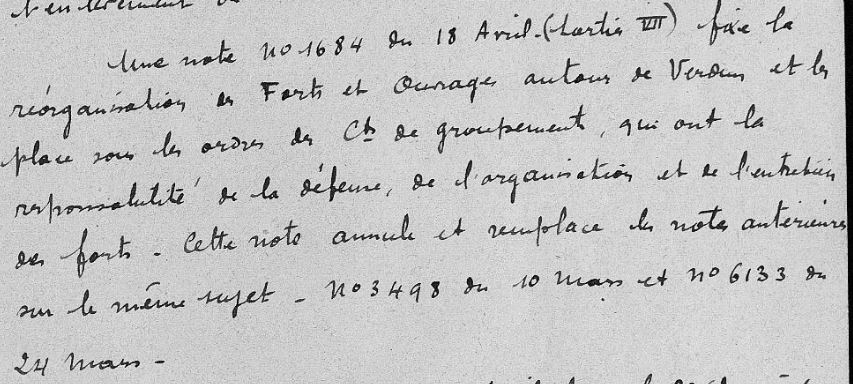 Une note no 1684 du 18 Avril (Partie VII) fixe la
réorganisation des Forts et Ouvrages autour de Verdun et les
place sous les ordres des Cts de groupements, qui ont la
responsabilité de la défense, de l'organisation et de l'entretien
des forts - Cette note annule et remplace les notes antérieures
sur le même sujet - No 3498 du 10 Mars et no 6133 du
24 Mars -